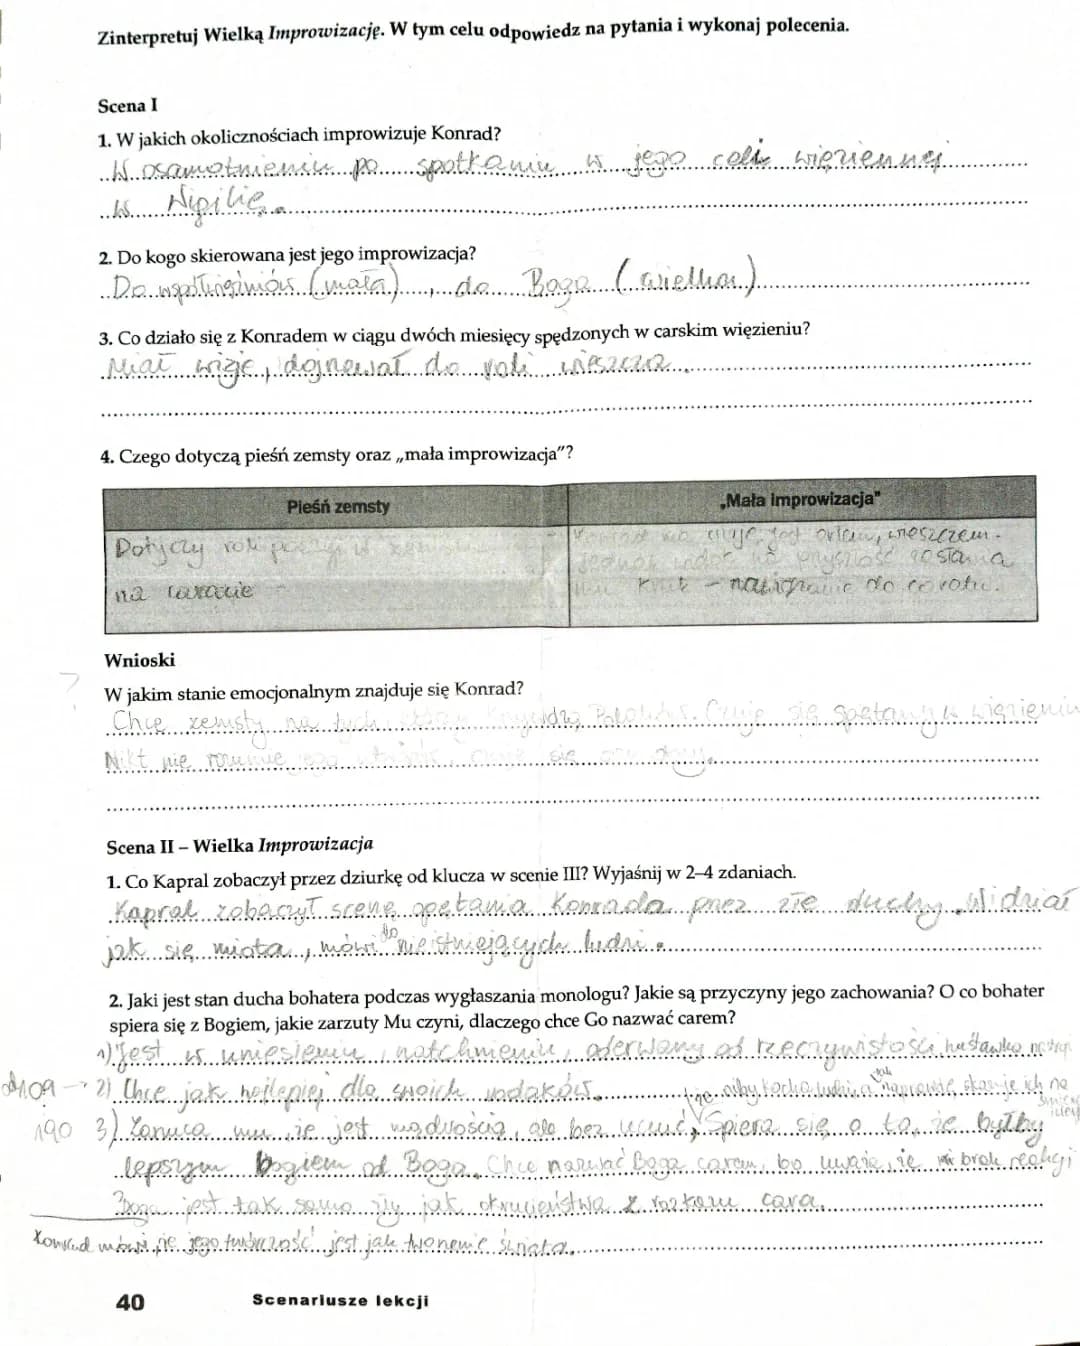 Zinterpretuj Wielką Improwizację. W tym celu odpowiedz na pytania i wykonaj polecenia.
Scena I
1. W jakich okolicznościach improwizuje Konrad?
W osamotnieniu po spotkaniu w jego celi więziennej
w Wigilię.
2. Do kogo skierowana jest jego improwizacja?
Do współwięźniów (mała), do Boga (wielka)
3. Co działo się z Konradem w ciągu dwóch miesięcy spędzonych w carskim więzieniu?
Miał wizje, dojrzewał do roli wieszcza.
4. Czego dotyczą pieśń zemsty oraz „mała improwizacja"?
Pieśń zemsty
„Mała improwizacja"
Dotyczy roli
czuje, jest orłem, wieszczem.
przyszłość zostaje
na caracie
Kruk – nawiązanie do
Wnioski
?
W jakim stanie emocjonalnym znajduje się Konrad?
Chce zemsty na tych, krzywdzą Polaków. Czuje się spętany w więzieniu
Nikt nie rozumie jego się
Scena II – Wielka Improwizacja
1. Co Kapral zobaczył przez dziurkę od klucza w scenie III? Wyjaśnij w 2–4 zdaniach.
Kapral zobaczył scenę opętania Konrada przez złe duchy. Widział
jak się miota, mówi do nieistniejących ludzi.
2. Jaki jest stan ducha bohatera podczas wygłaszania monologu? Jakie są przyczyny jego zachowania? O co bohater
spiera się z Bogiem, jakie zarzuty Mu czyni, dlaczego chce Go nazwać carem?
1) Jest w uniesieniu, natchnieniu, oderwany od rzeczywistości, huśtawka
2) Chce jak najlepiej dla swoich rodaków. niby kocha ludzi, a tak naprawdę skazuje ich na
190 3) Zarzuca mu, że jest mądrością, ale bez uczuć, Spiera się o to, że byłby
lepszym Bogiem od Boga. Chce nazwać Boga carem, bo uważa, że brak reakcji
Boga jest tak samo zły jak okrucieństwa z rozkazu cara.
Konrad mówi, że jego twórczość jest jak tworzenie świata.
40 Scenariusze lekcji